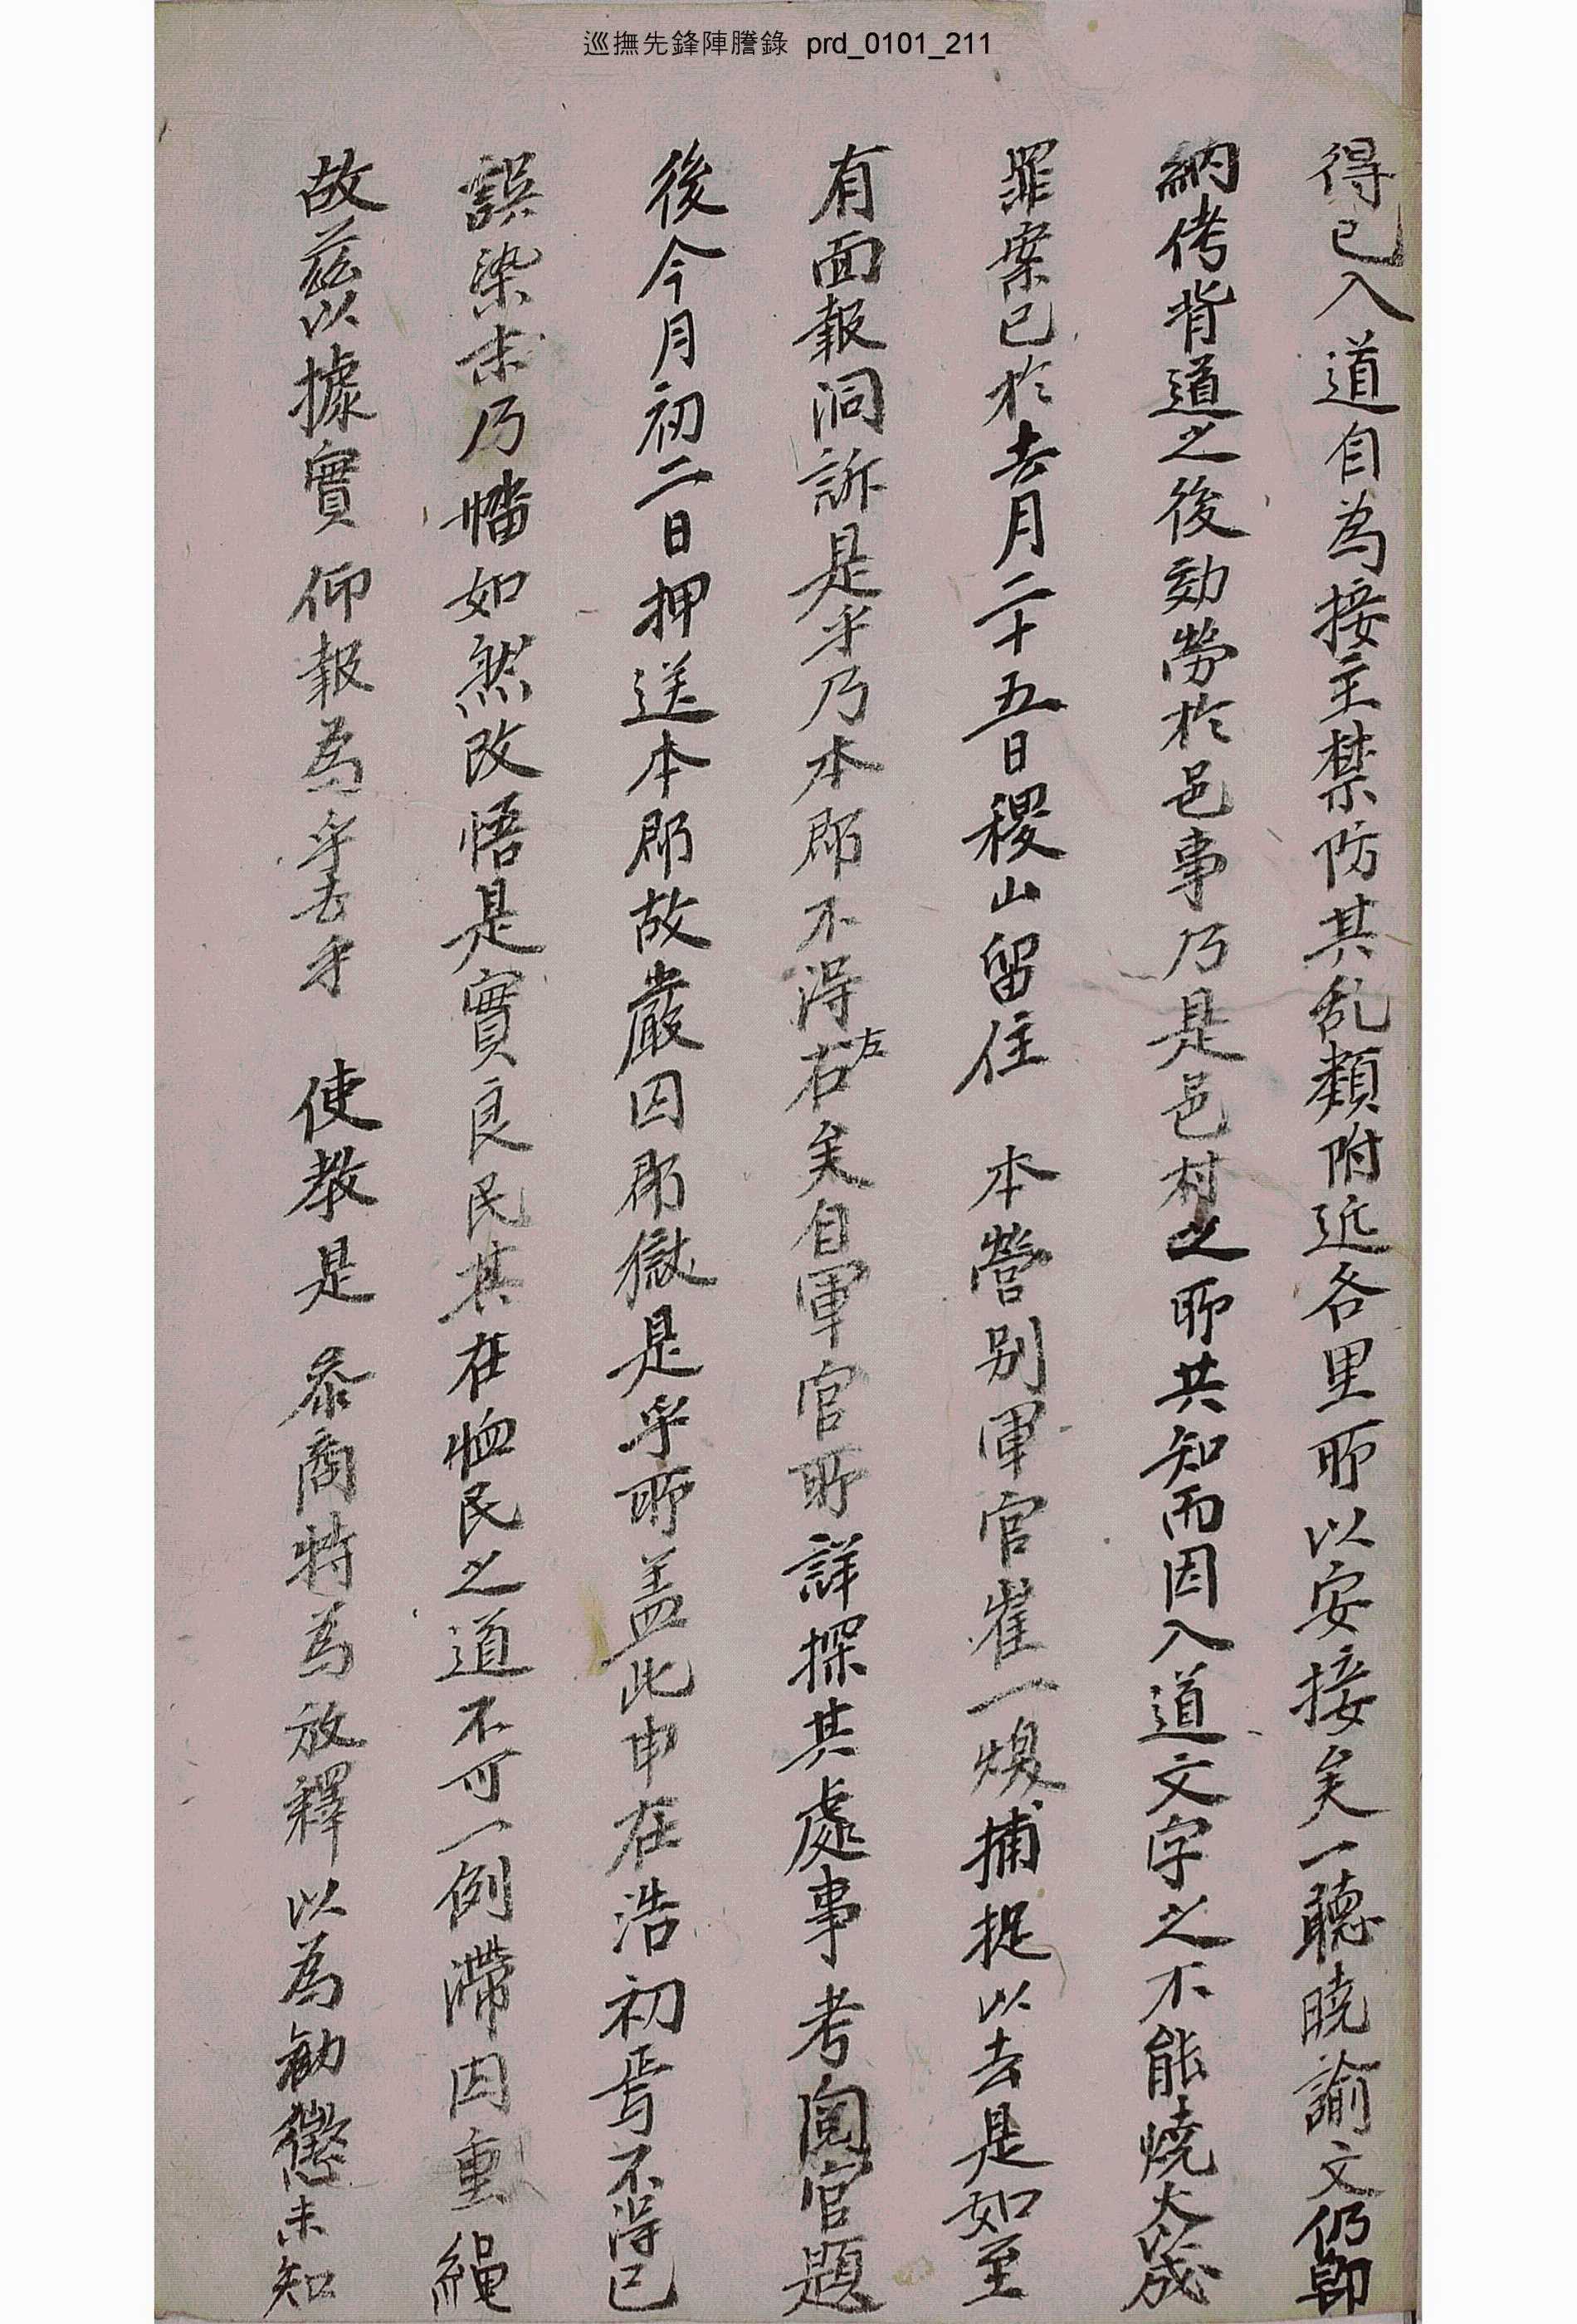 巡撫先鋒陣謄錄 prd_0101_211
得已入道自為接主禁防其乱類附近各里所以安接矣一聽曉諭文仍卽
納侤背道之後効勞於邑事乃是邑村之所共知而因入道文字之不能燒火成
罪案已於去月二十五日稷山留住 本營別軍官崔一煥捕捉以去是如至
有面報洞訴是乎乃本郡不淂左右矣自軍官所詳探其處事考閱官題
後今月初二日押送本郡故嚴囚郡獄是乎所盖此申在浩初焉不淂已
誤染末乃幡如然改悟是實良民其在恤民之道不可一例滯囚重繩
故茲以據實仰報為乎去乎 使教是 叅商特為放釋以為勸懲未知